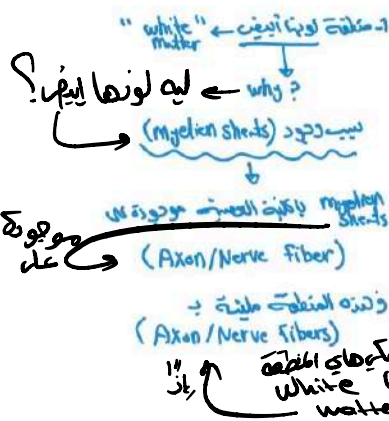 ١- منطقة لونها أبيض ← "white matter"
why? ← ليه لونها ابيض؟
بسبب وجود (myelien sheats)
myelien sheats موجودة على
موجودة على
(Axon/Nerve fiber)
وهذه المنطقة مليئة بـ
(Axon/Nerve fibers)
هاي المنطقة
white